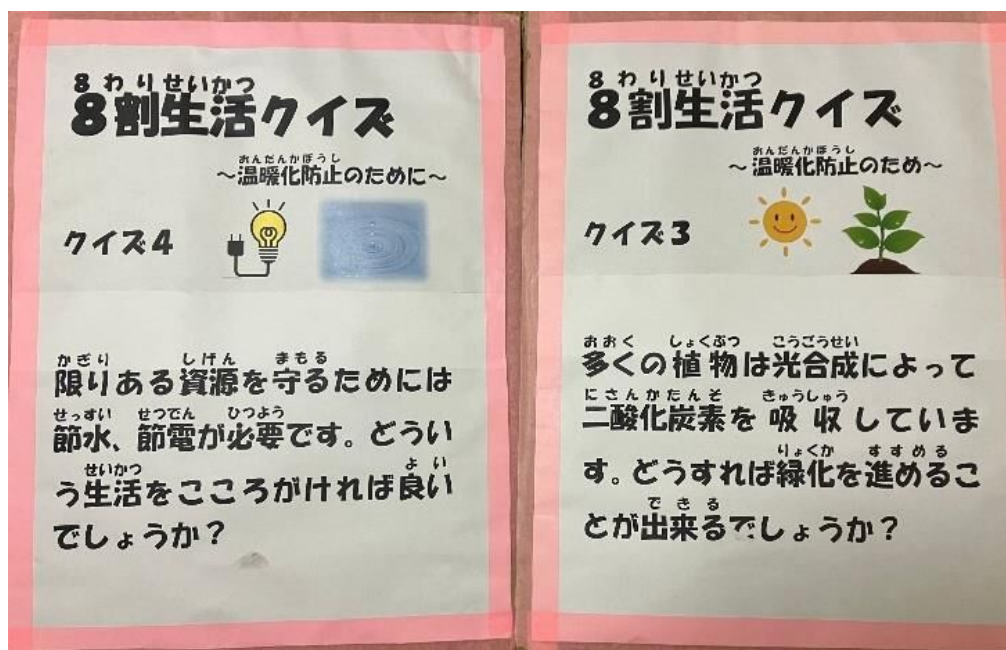 8わりせいかつ
8割生活クイズ
おんだんかぼうし
～温暖化防止のために～
クイズ4
かぎり しげん まもる
限りある資源を守るためには
せっすい せつでん ひつよう
節水、節電が必要です。どうい
せいかつ よい
う生活をこころがければ良い
でしょうか？
8わりせいかつ
8割生活クイズ
おんだんかぼうし
～温暖化防止のため～
クイズ3
おおく しょくぶつ こうごうせい
多くの植物は光合成によって
にさんかたんそ きゅうしゅう
二酸化炭素を吸収していま
りょくか すすめる
す。どうすれば緑化を進めるこ
できる
とが出来るでしょうか？